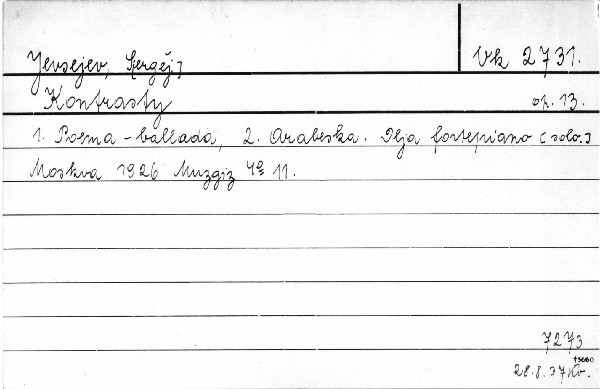 Jevsejev, S[ergěj]
Vk 2731.
Kontrasty op. 13.
1. Poema - ballada, 2. Arabeska. Dlja fortepiano (solo.)
Moskva 1926 Muzgiz 4º 11.
7273
T5660
28.8.37 Kv.